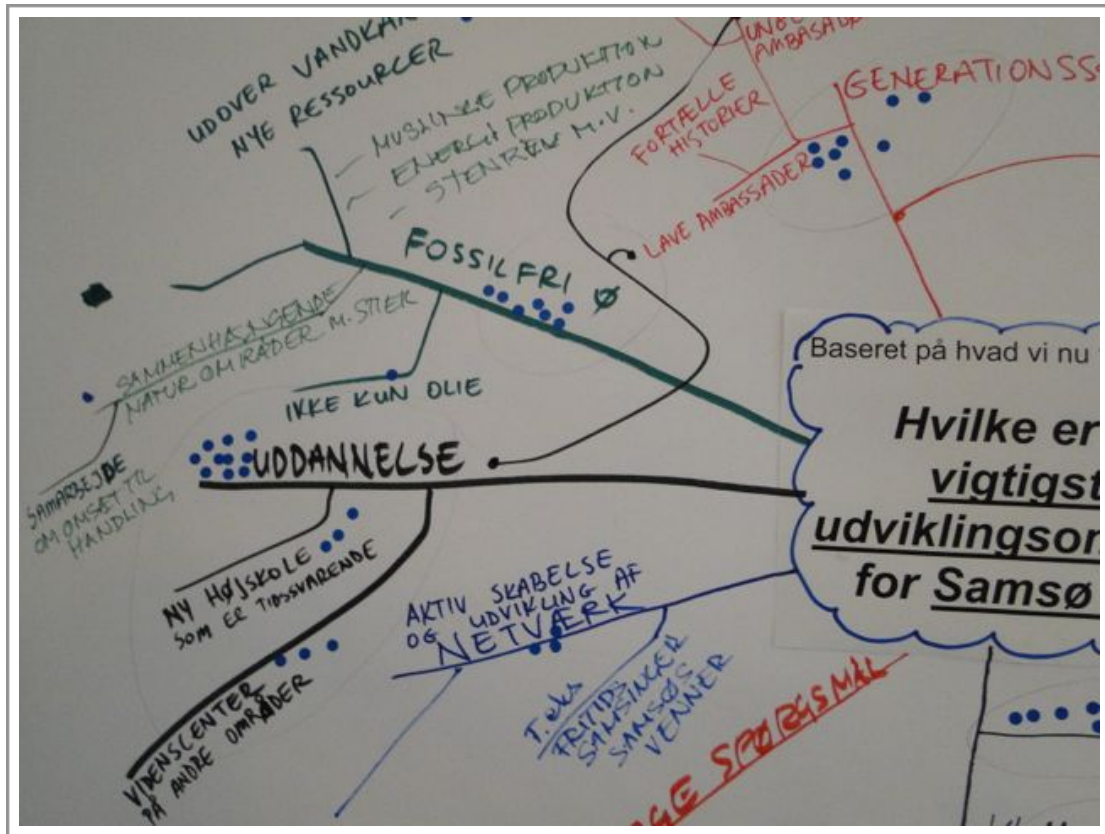 UDOVER VANDKAN
NYE RESSOURCER
MUSLINGE PRODUKTION
ENERGI PRODUKTION
STENREV M.V.
FOSSILFRI Ø
SAMMENHÆNGENDE
NATUR OMRÅDER M. STIER
SAMARBEJDE
OM OMSÆT TIL
HANDLING
IKKE KUN OLIE
UDDANNELSE
NY HØJSKOLE
SOM ER TIDSSVARENDE
VIDENSCENTER
PÅ ANDRE OMRÅDER
AKTIV SKABELSE
OG UDVIKLING AF
NETVÆRK
T. eks
FRITIDS
SAMSINGER
SAMSØS
VENNER
AMBASAD
GENERATIONSS
FORTÆLLE
HISTORIER
LAVE AMBASSADER
Baseret på hvad vi nu
Hvilke er
vigtigst
udviklingsom
for Samsø
GE SPØRGSMÅL